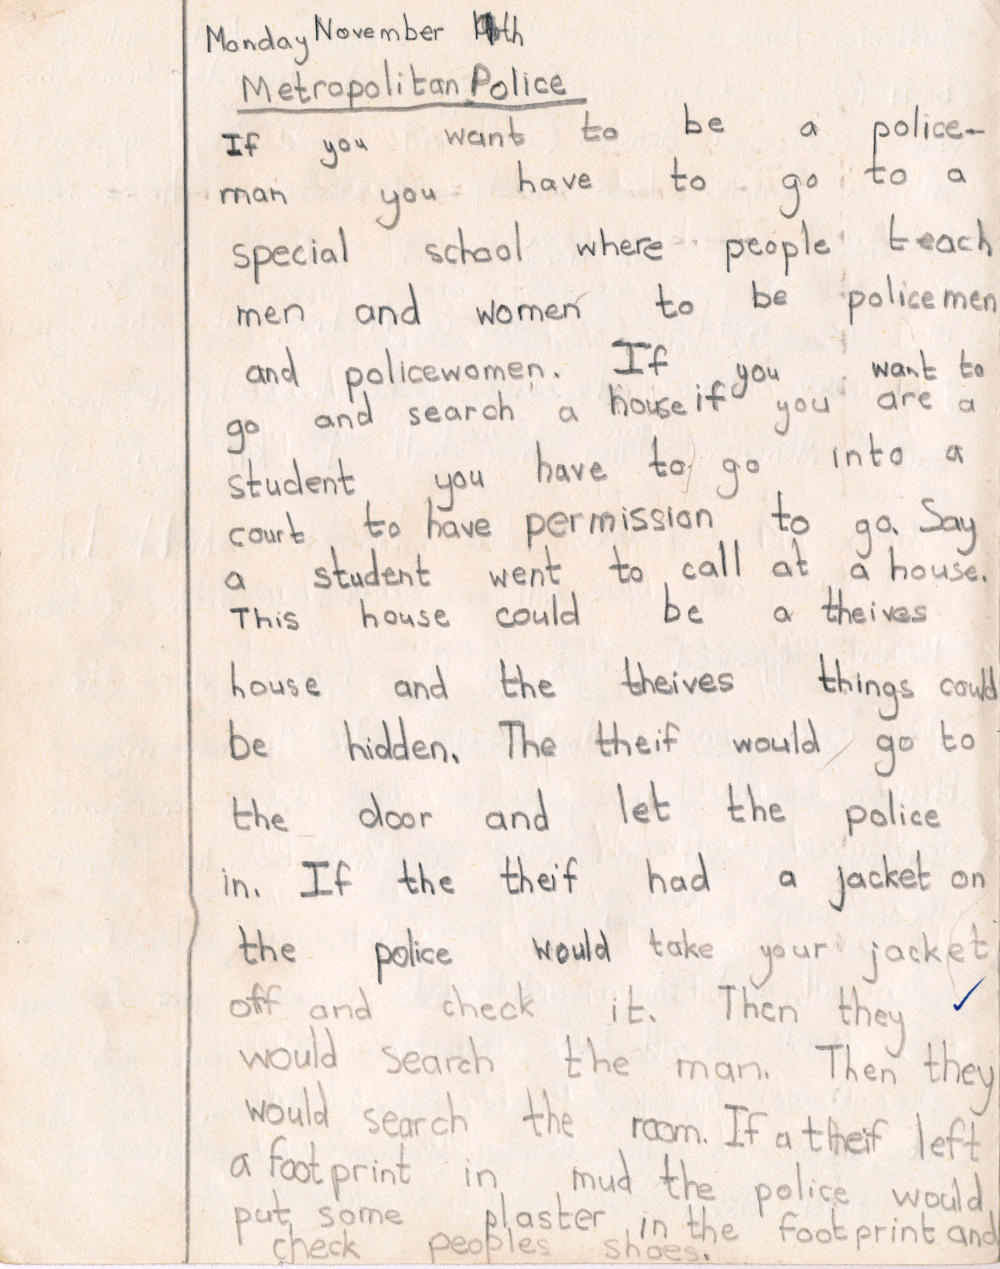 Monday November th
Metropolitan Police
If you want to be a police-
man you have to go to a
special school where people teach
men and women to be policemen
and policewomen. If you want to
go and search a house if you are a
student you have to go into a
court to have permission to go. Say
a student went to call at a house.
This house could be a theives
house and the theives things could
be hidden. The theif would go to
the door and let the police
in. If the theif had a jacket on
the police would take your jacket
off and check it. Then they
would search the man. Then they
would search the room. If a theif left
a footprint in mud the police would
put some plaster in the footprint and
check peoples shoes.